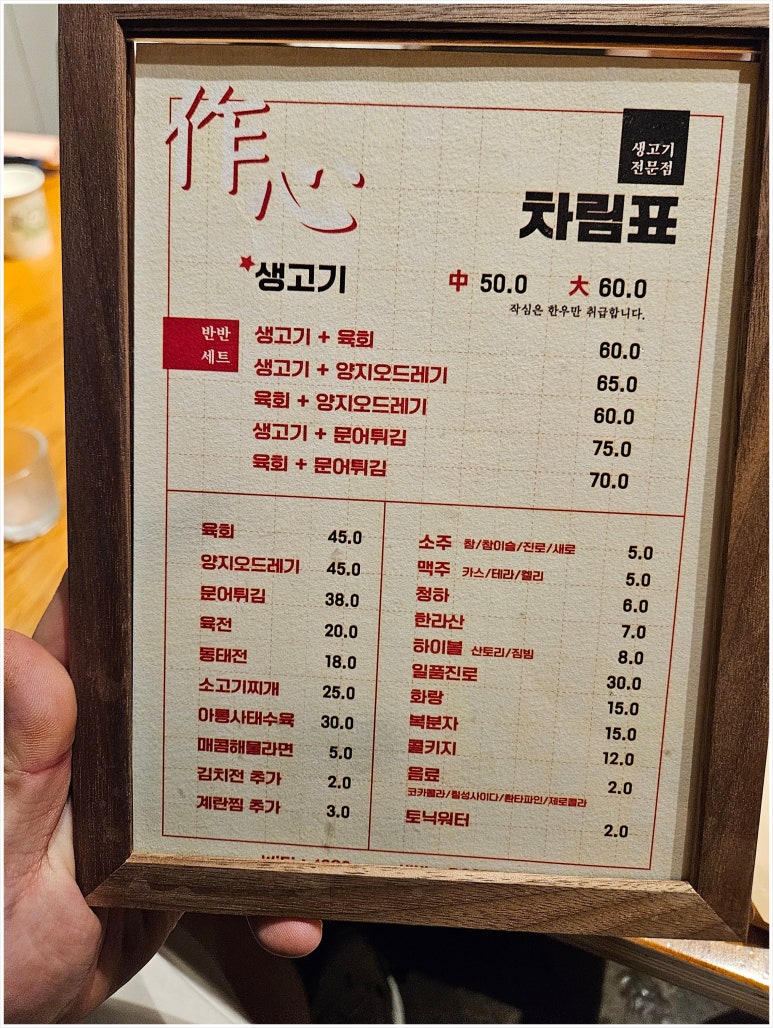 作心
생고기
전문점
차림표
생고기 中 50.0 大 60.0
작심은 한우만 취급합니다.
반반
세트
생고기 + 육회 60.0
생고기 + 양지오드레기 65.0
육회 + 양지오드레기 60.0
생고기 + 문어튀김 75.0
육회 + 문어튀김 70.0
육회 45.0
양지오드레기 45.0
문어튀김 38.0
육전 20.0
동태전 18.0
소고기찌개 25.0
아롱사태수육 30.0
매콤해물라면 5.0
김치전 추가 2.0
계란찜 추가 3.0
소주 참/참이슬/진로/새로 5.0
맥주 카스/테라/켈리 5.0
청하 6.0
한라산 7.0
하이볼 산토리/짐빔 8.0
일품진로 30.0
화랑 15.0
복분자 15.0
콜키지 12.0
음료 2.0
코카콜라/칠성사이다/환타파인/제로콜라
토닉워터 2.0